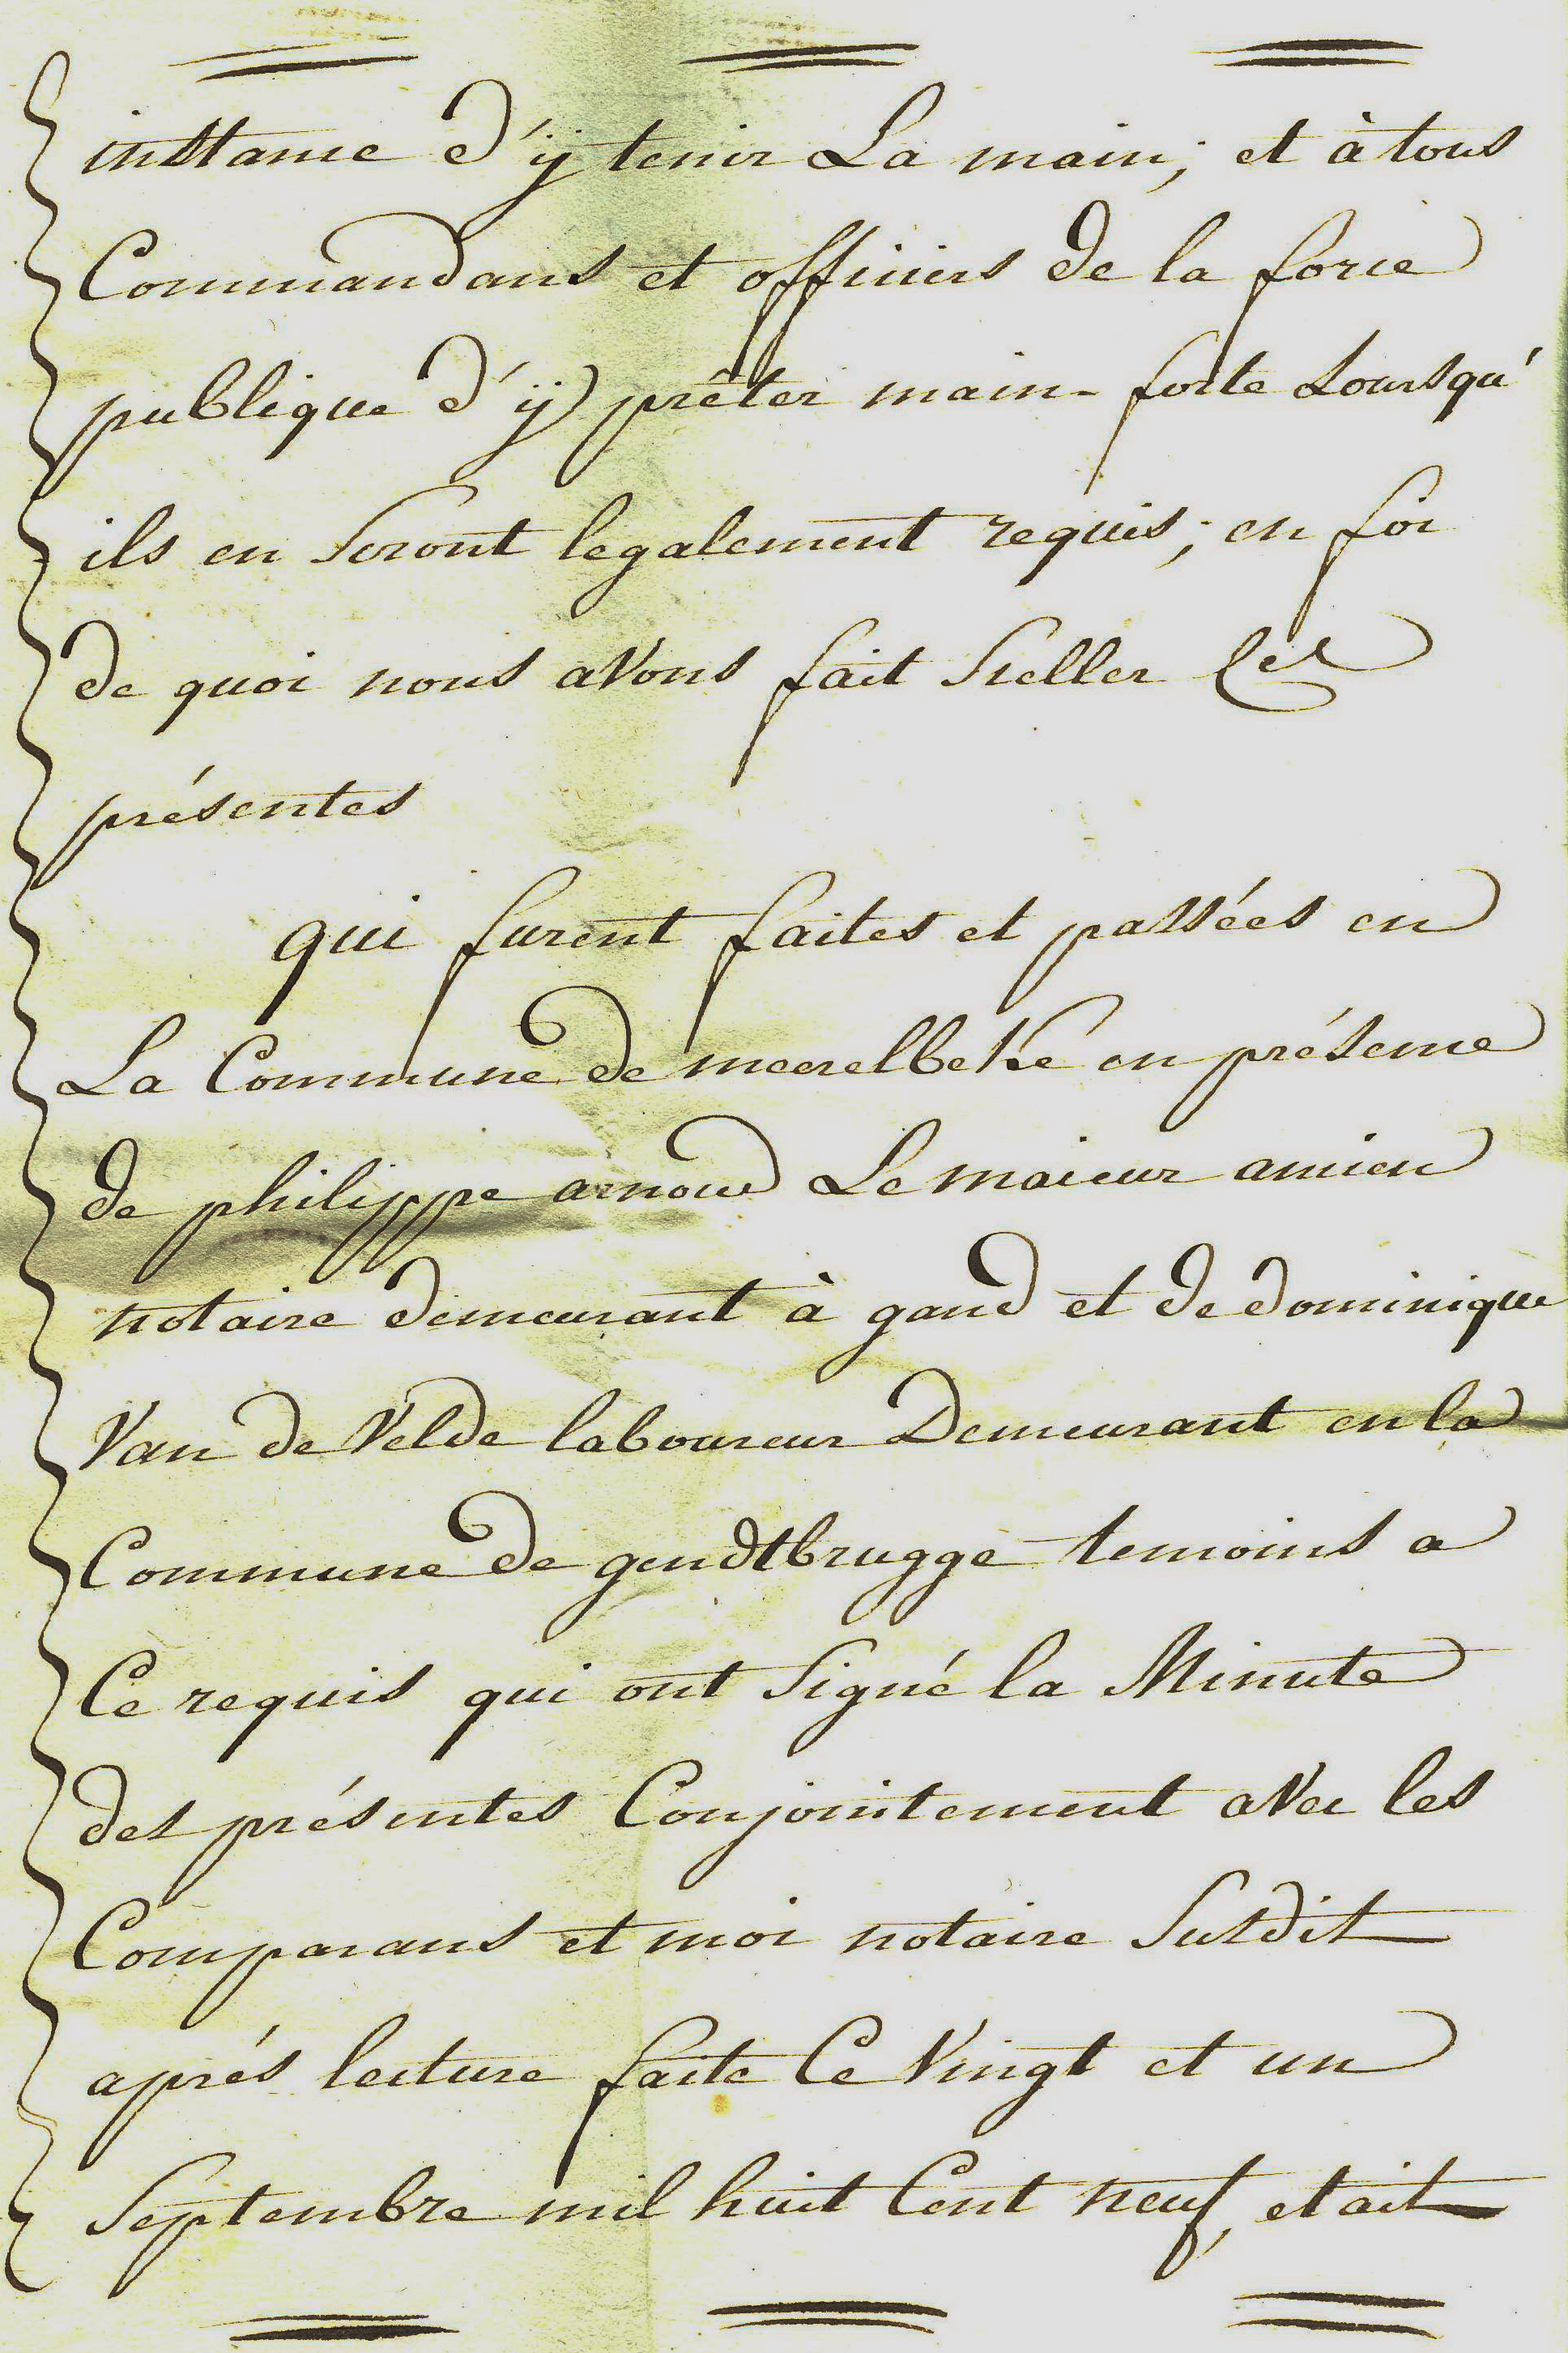 instance d'ÿ tenir La main; et à tous
Commandans et officiers de la force
publique d'ÿ prêter main-forte Loursqu'
ils en Seront legalement requis; en foi
de quoi nous avons fait Sceller les
présentes
qui furent faites et passées en
La Commune de meerelbeke en présence
de philippe arnoud Le maieur ancien
notaire demeurant à gand et de dominique
Van de Velde laboureur Demeurant en la
Commune de gendtbrugge temoins a
Ce requis qui ont Signé la Minute
des présentes Conjointement avec les
Comparans et moi notaire Susdit
aprés lecture faite Ce Vingt et un
Septembre mil huit Cent neuf, etait